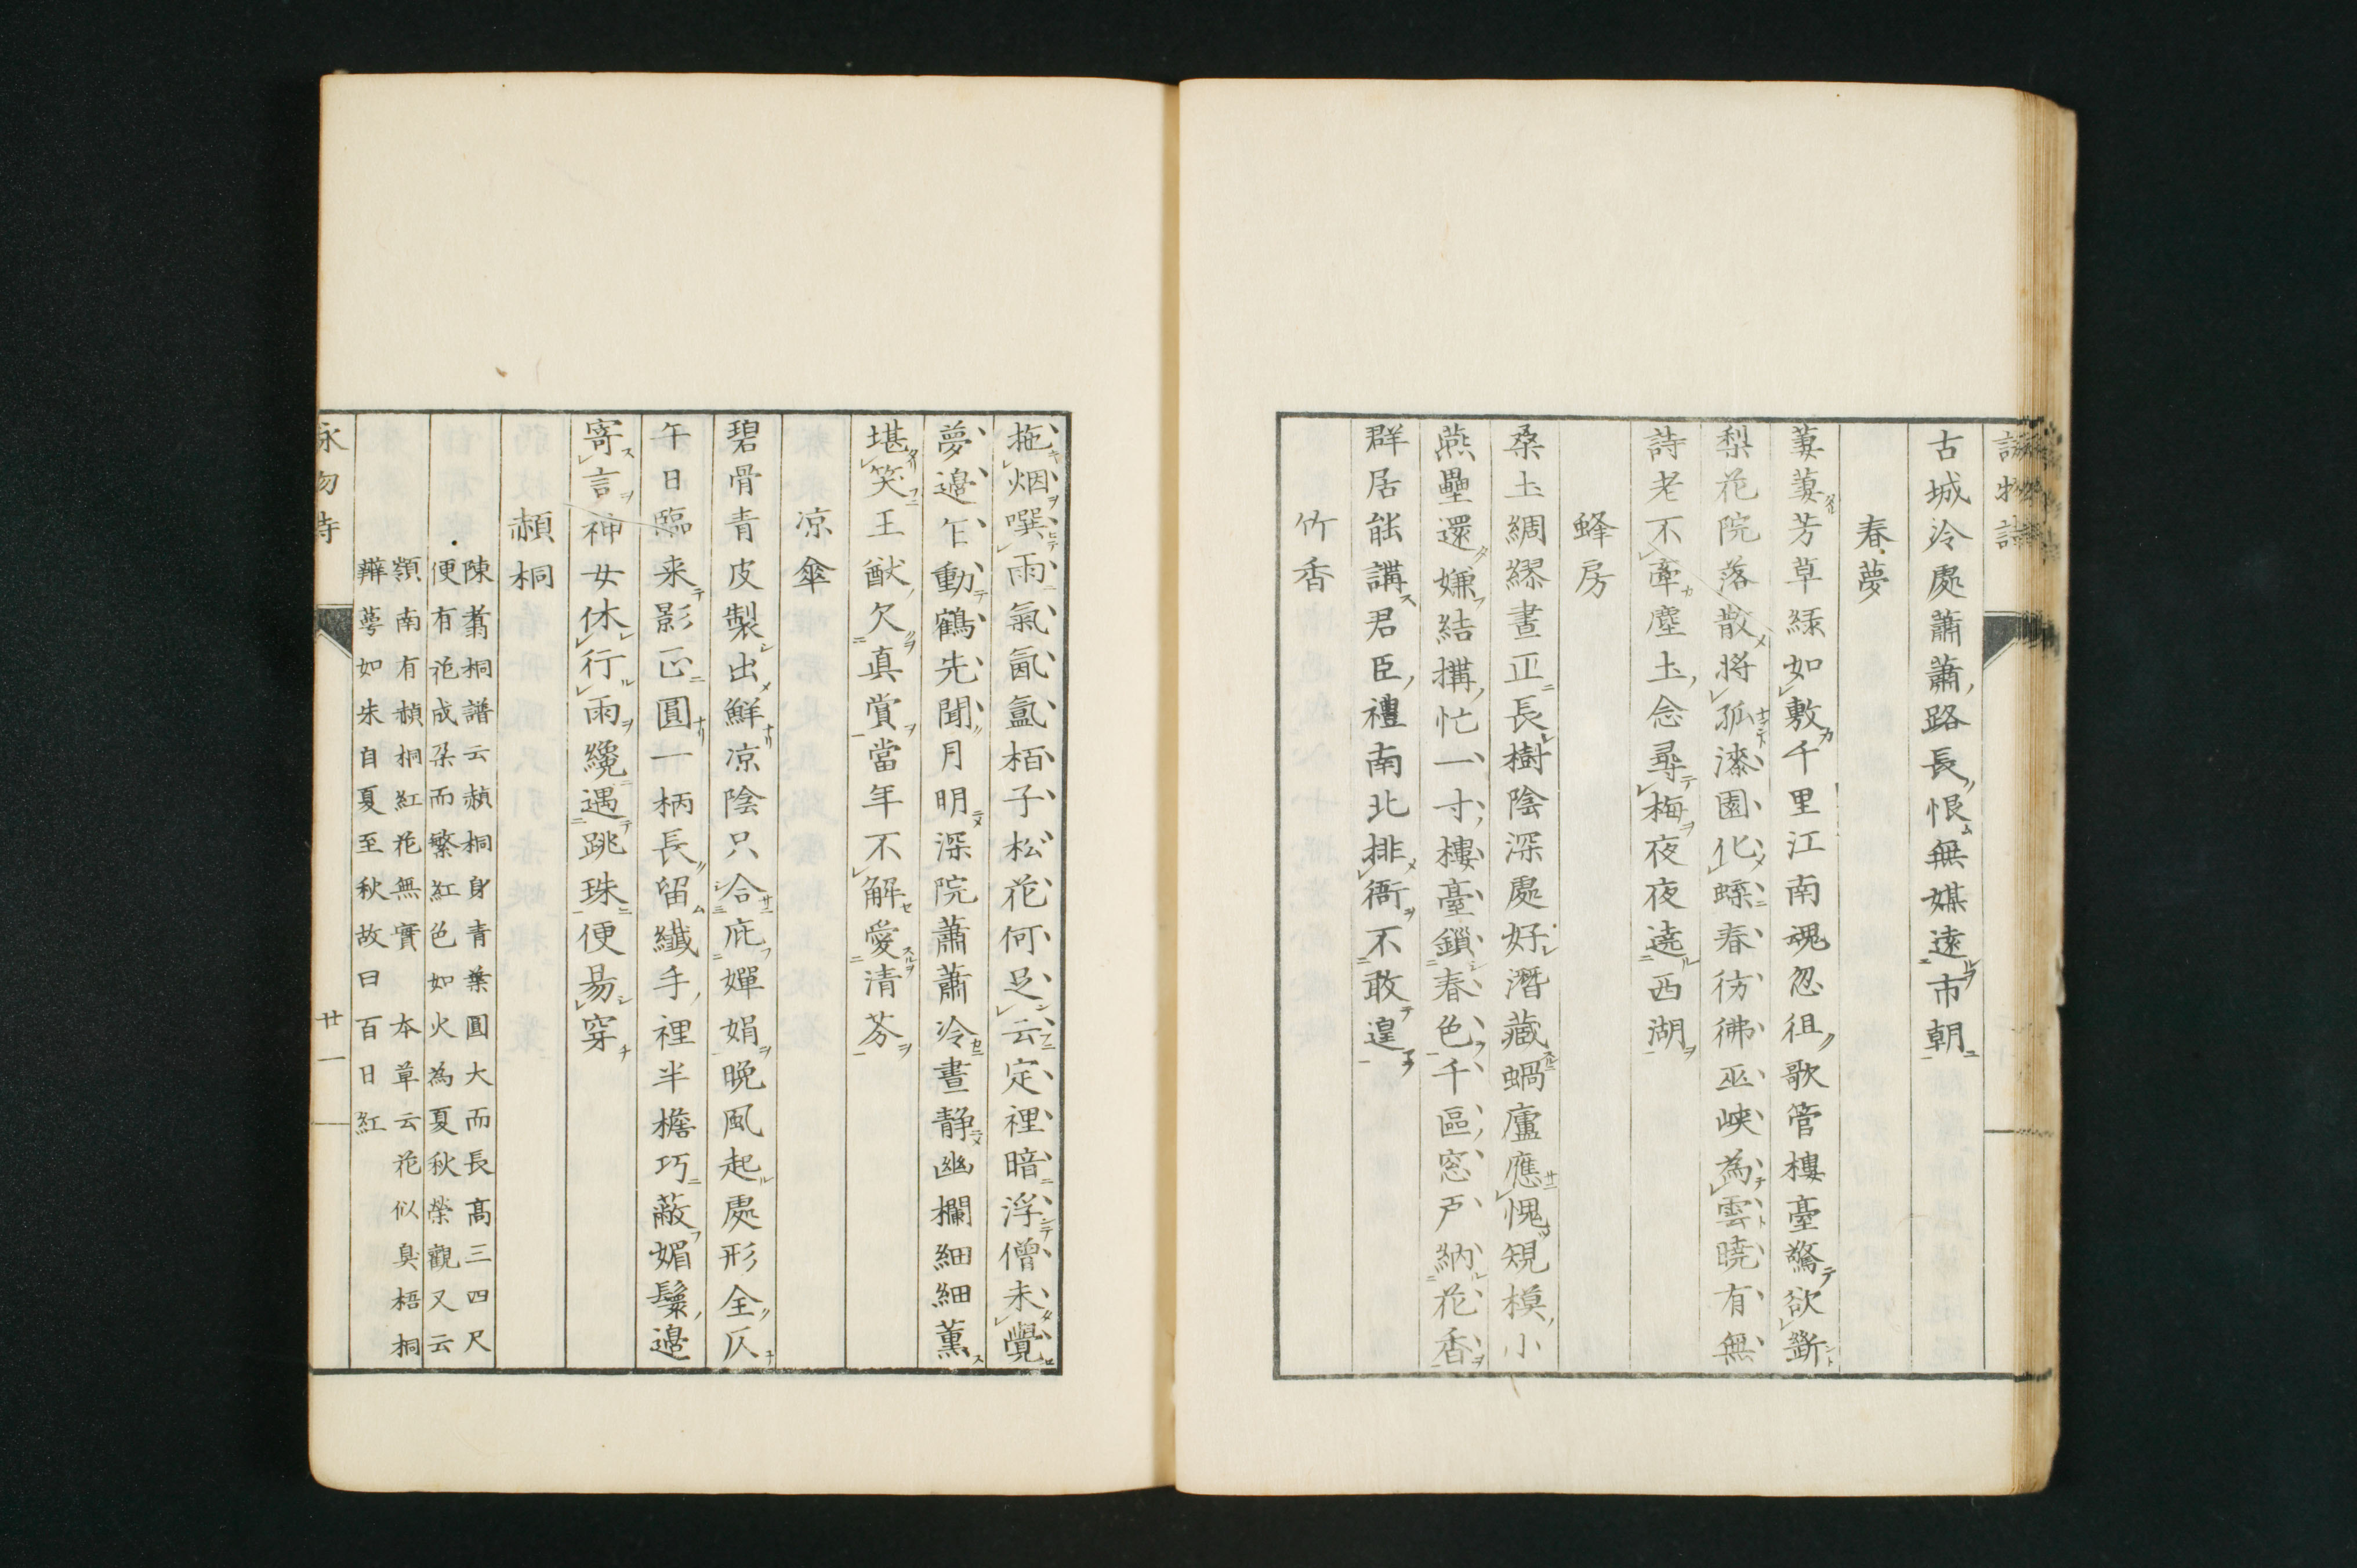 詠物詩
古城冷處蕭蕭路長恨無媒遠市朝
春夢
萋萋芳草綠如敷千里江南魂忽徂歌管樓臺驚欲斷
梨花院落散將孤漆園化蝶春彷彿巫峽為雲曉有無
詩老不牽塵土念尋梅夜夜遶西湖
蜂房
桑土綢繆晝正長樹陰深處好潛藏蝸廬應愧規模小
燕壘還嫌結搆忙一寸樓臺鎖春色千區窓戶納花香
群居能講君臣禮南北排衙不敢遑
竹香
拖烟噀雨氣氤氳栢子松花何足云定裡暗浮僧未覺
夢邊乍動鶴先聞月明深院蕭蕭冷晝静幽欄細細薫
堪笑王猷欠真賞當年不解愛清芬
凉傘
碧骨青皮製出鮮凉陰只合庇嬋娟晩風起處形全仄
午日臨来影正圓一柄長留纖手裡半檐巧蔽媚鬟邉
寄言神女休行雨纔遇跳珠便易穿
赬桐
陳翥桐譜云赬桐身青葉圓大而長高三四尺
便有花成朶而繁紅色如火為夏秋榮觀又云
嶺南有赬桐紅花無實　本草云花似臭梧桐
瓣蕚如朱自夏至秋故曰百日紅
詠物詩
廿一